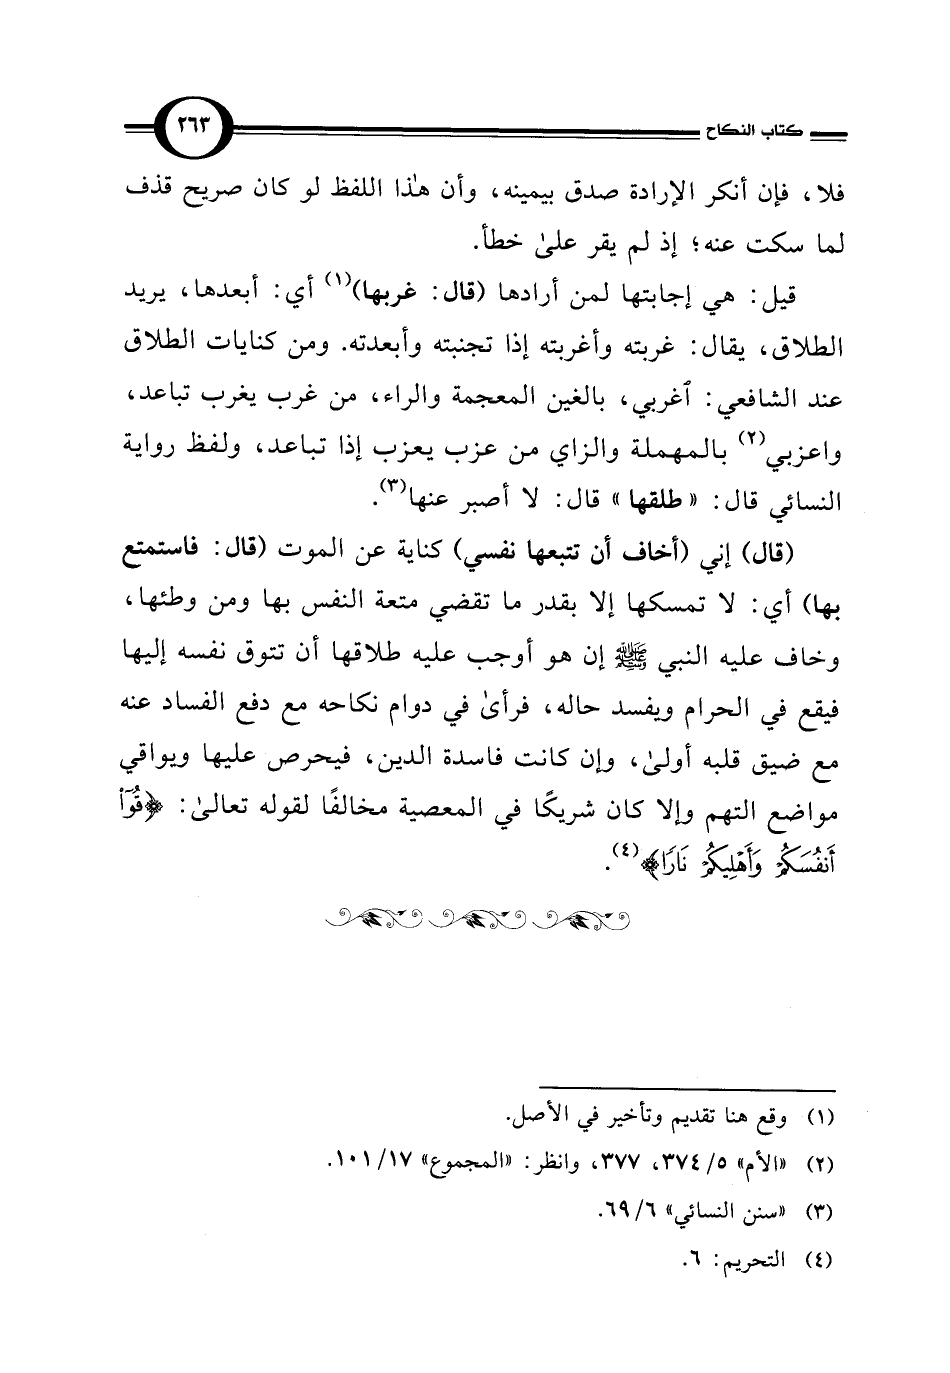 كتاب النكاح ٢٦٣
فلا، فإن أنكر الإرادة صدق بيمينه، وأن هٰذا اللفظ لو كان صريح قذف
لما سكت عنه؛ إذ لم يقر علىٰ خطأ.
قيل: هي إجابتها لمن أرادها (قال: غربها)(١) أي: أبعدها، يريد
الطلاق، يقال: غربته وأغربته إذا تجنبته وأبعدته. ومن كنايات الطلاق
عند الشافعي: ٱغربي، بالغين المعجمة والراء، من غرب يغرب تباعد،
واعزبي(٢) بالمهملة والزاي من عزب يعزب إذا تباعد، ولفظ رواية
النسائي قال: «طلقها» قال: لا أصبر عنها(٣).
(قال) إني (أخاف أن تتبعها نفسي) كناية عن الموت (قال: فاستمتع
بها) أي: لا تمسكها إلا بقدر ما تقضي متعة النفس بها ومن وطئها،
وخاف عليه النبي ﷺ إن هو أوجب عليه طلاقها أن تتوق نفسه إليها
فيقع في الحرام ويفسد حاله، فرأىٰ في دوام نكاحه مع دفع الفساد عنه
مع ضيق قلبه أولىٰ، وإن كانت فاسدة الدين، فيحرص عليها ويواقي
مواضع التهم وإلا كان شريكًا في المعصية مخالفًا لقوله تعالىٰ: ﴿قُوٓاْ
أَنفُسَكُمْ وَأَهْلِيكُمْ نَارًا﴾(٤).
(١) وقع هنا تقديم وتأخير في الأصل.
(٢) «الأم» ٥/ ٣٧٤، ٣٧٧، وانظر: «المجموع» ١٧/ ١٠١.
(٣) «سنن النسائي» ٦/ ٦٩.
(٤) التحريم: ٦.